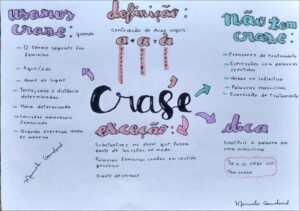 usamos
crase: quando
- O termo seguinte for
feminino
- Aquilo/Ade
- Nome de lugar
- Terra, casa e distância
determinadas
- Hora determinada
- Locuções adverbiais
femininas
- Quando expressa moda ou
maneira
definição:
contração de duas vogais
a + a = à
Crase
exceção:
Substantivos no plural que fazem
parte de locuções de modo
Palavras femininas usadas em sentido
genérico
Diante
não tem
crase:
- Pronomes de Tratamento
- Expressões com palavras
repetidas
- Verbos no infinitivo
- Palavras masculinas
- Expressão de Tratamento
dica
Substitua a palavra
por uma
masculina
Se o a virar ao
Tem crase